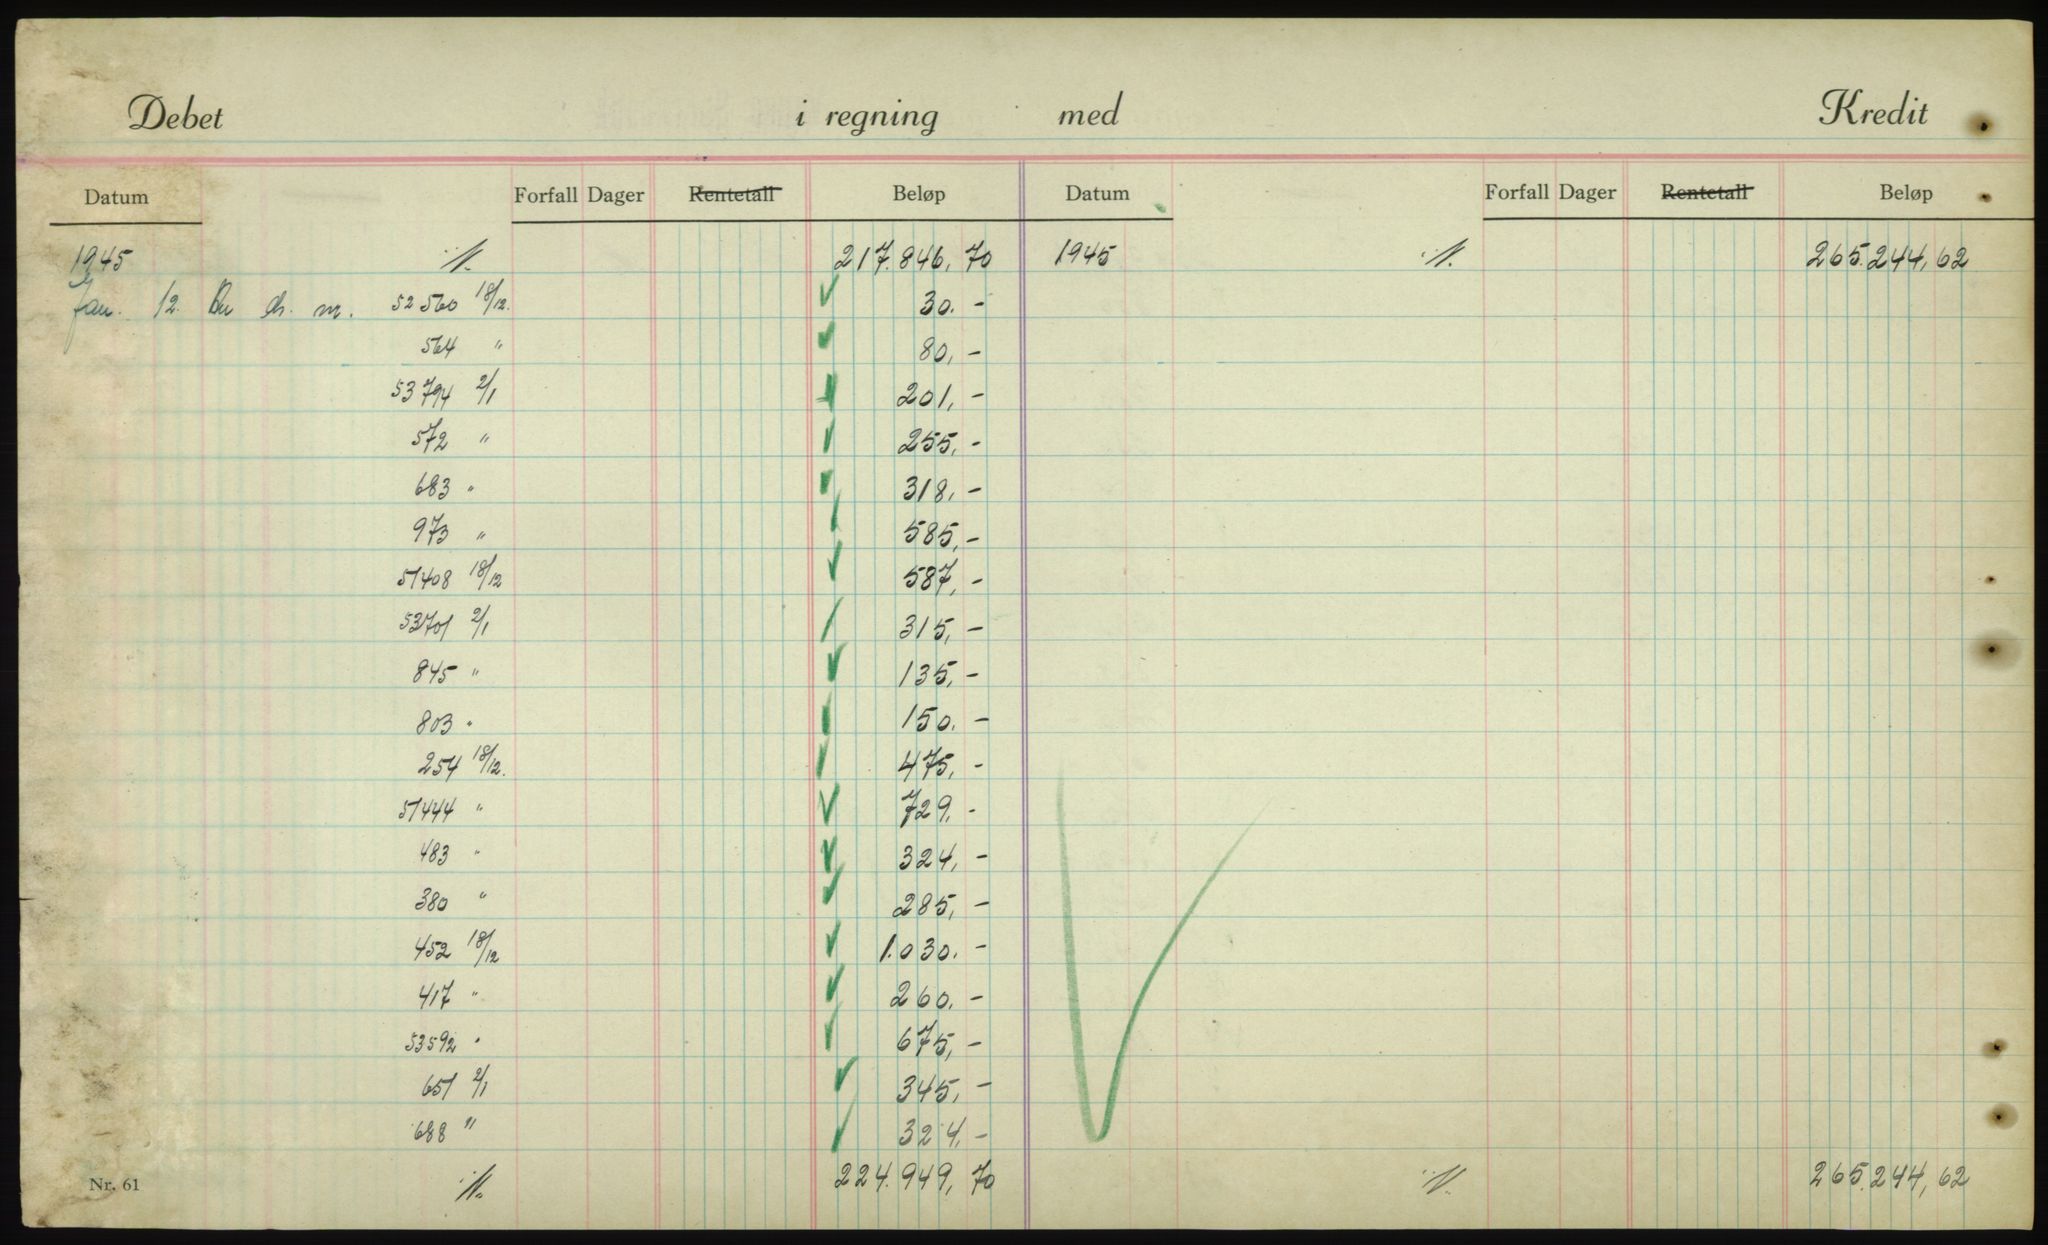 Debet i regning med Kredit
Datum Forfall Dager Rentetall Beløp Datum Forfall Dager Rentetall Beløp
1945 217.846,70 1945 265.244,62
Jan. 12. 52560 18/12. 30.-
564 " 80,-
53794 2/1 201,-
572 " 255,-
683 " 318,-
973 " 585,-
51408 18/12 587,-
53701 2/1 315,-
845 " 135,-
803 " 150.-
254 18/12. 475,-
51444 " 729,-
483 " 324,-
380 " 285,-
452 18/12 1.030.-
417 " 260.-
53592 " 675,-
651 2/1 345,-
688 " 324,-
Nr. 61 224.949,70 265.244,62